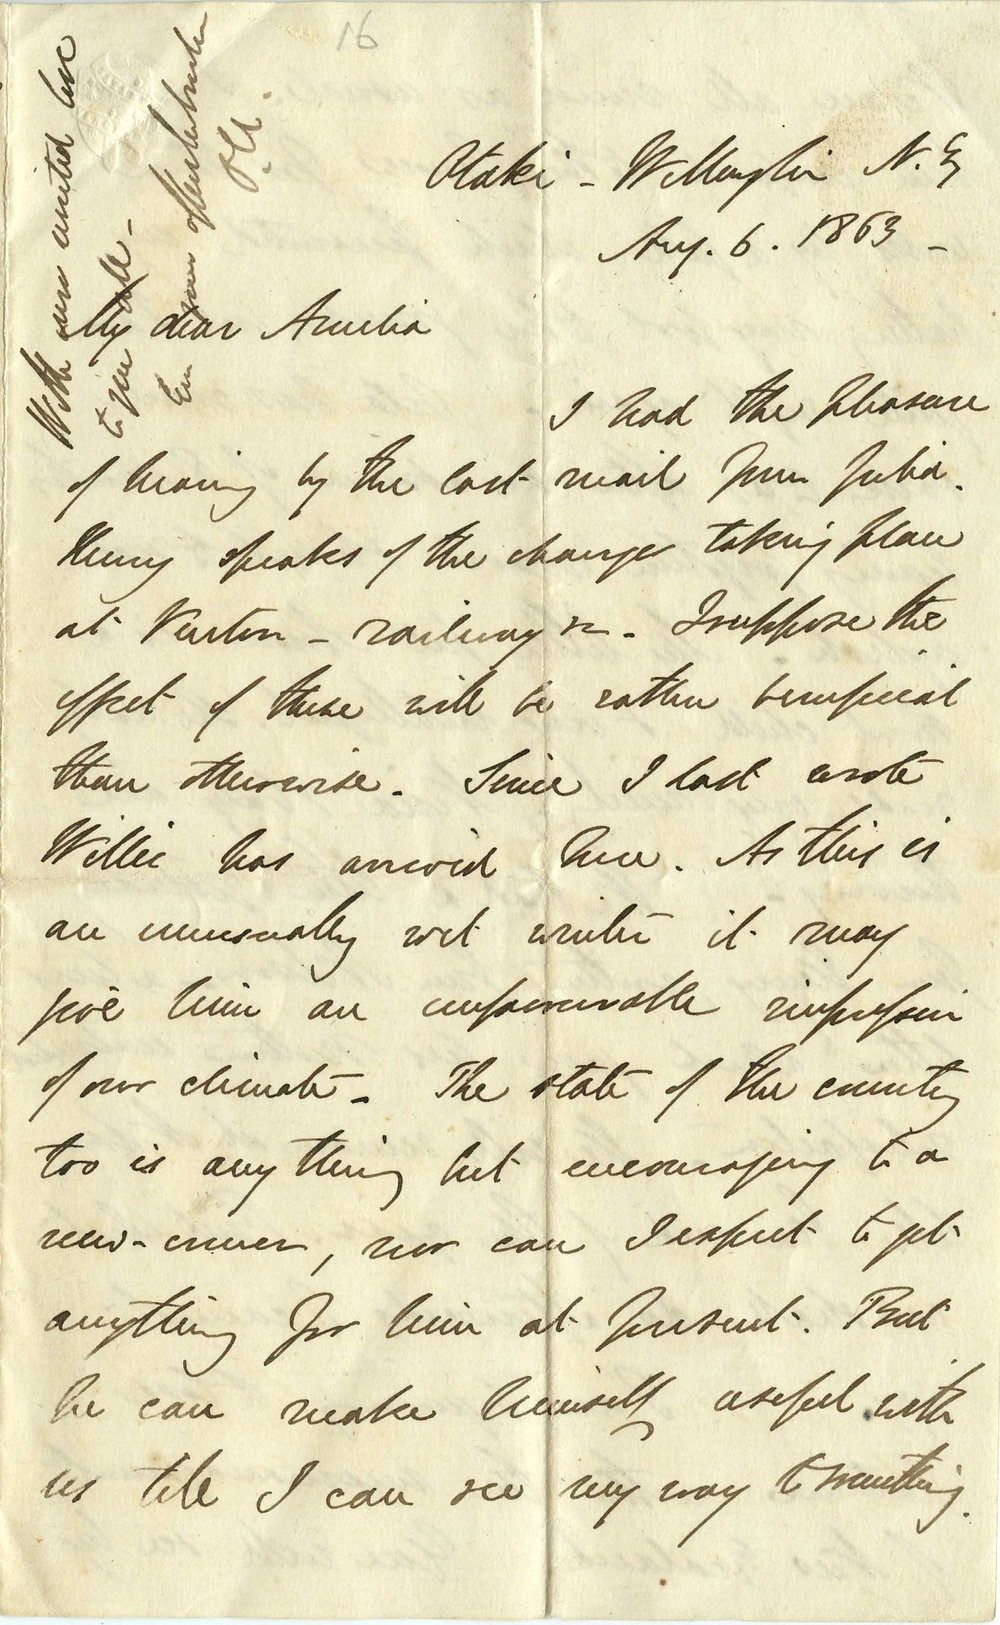 16
Otaki - Wellington N.Z
Aug. 6. 1863 -
My dear Amelia
I had the pleasure
of hearing by the last mail from Julia.
Henry speaks of the changes taking place
at - railway &c -. I suppose the
effect of these will be rather beneficial
than otherwise. Since I last wrote
Willie has arrived here. As this is
an unusually wet winter it may
give him an unfavourable impression
of our climate - The state of the country
too is anything but encouraging to a
new-comer, nor can I expect to get
anything for him at present. But
he can make himself useful with
us till I can see my way to something.
With our united love
to you all -